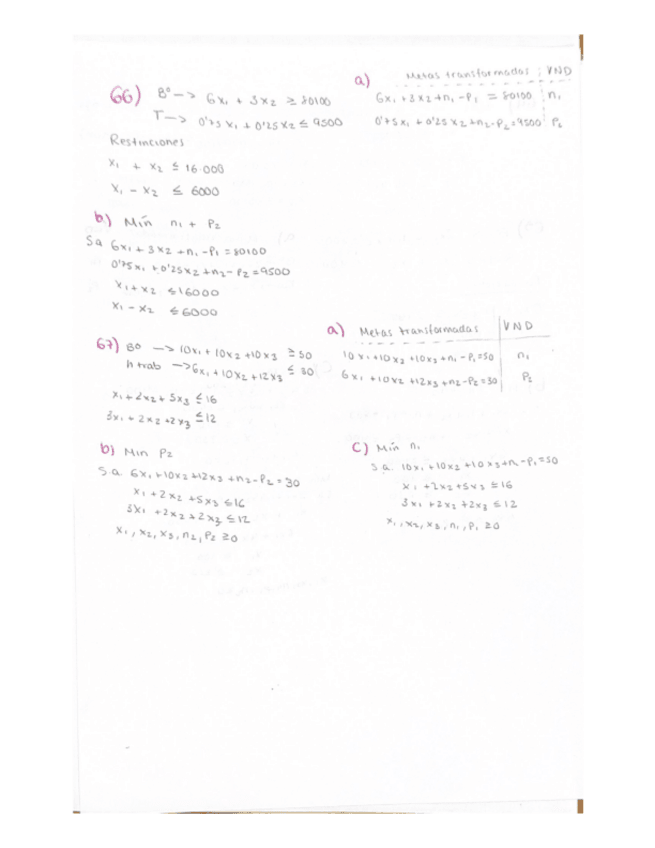 66) Bº -> 6x₁ + 3x2 ≥ 80100
T -> 0'75 x₁ + 0'25 x2 ≤ 9500
Restricciones
x₁ + x₂ ≤ 16.000
x₁ - x₂ ≤ 6000
a) Metas transformadas | VND
6x₁ + 3x2 + n₁ - P₁ = 80100 | n₁
0'75 x₁ + 0'25 x2 + n2 - P2 = 9500 | P2
b) Mín n₁ + P2
Sa 6x₁ + 3x2 + n₁ - P₁ = 80100
0'75x₁ + 0'25x2 + n2 - P2 = 9500
x₁ + x2 ≤ 16000
x₁ - x2 ≤ 6000
67) Bº -> 10x₁ + 10x2 + 10x3 ≥ 50
h trab -> 6x₁ + 10x2 + 12x3 ≤ 30
x₁ + 2x2 + 5x3 ≤ 16
3x₁ + 2x2 + 2x3 ≤ 12
a) Metas transformadas | VND
10x₁ + 10x2 + 10x3 + n₁ - P₁ = 50 | n₁
6x₁ + 10x2 + 12x3 + n2 - P2 = 30 | P2
b) Min P2
S.a 6x₁ + 10x2 + 12x3 + n2 - P2 = 30
x₁ + 2x2 + 5x3 ≤ 16
3x₁ + 2x2 + 2x3 ≤ 12
x₁, x2, x3, n2, P2 ≥ 0
c) Mín n₁
s.a. 10x₁ + 10x2 + 10x3 + n - P₁ = 50
x₁ + 2x2 + 5x3 ≤ 16
3x₁ + 2x2 + 2x3 ≤ 12
x₁, x2, x3, n₁, P₁ ≥ 0